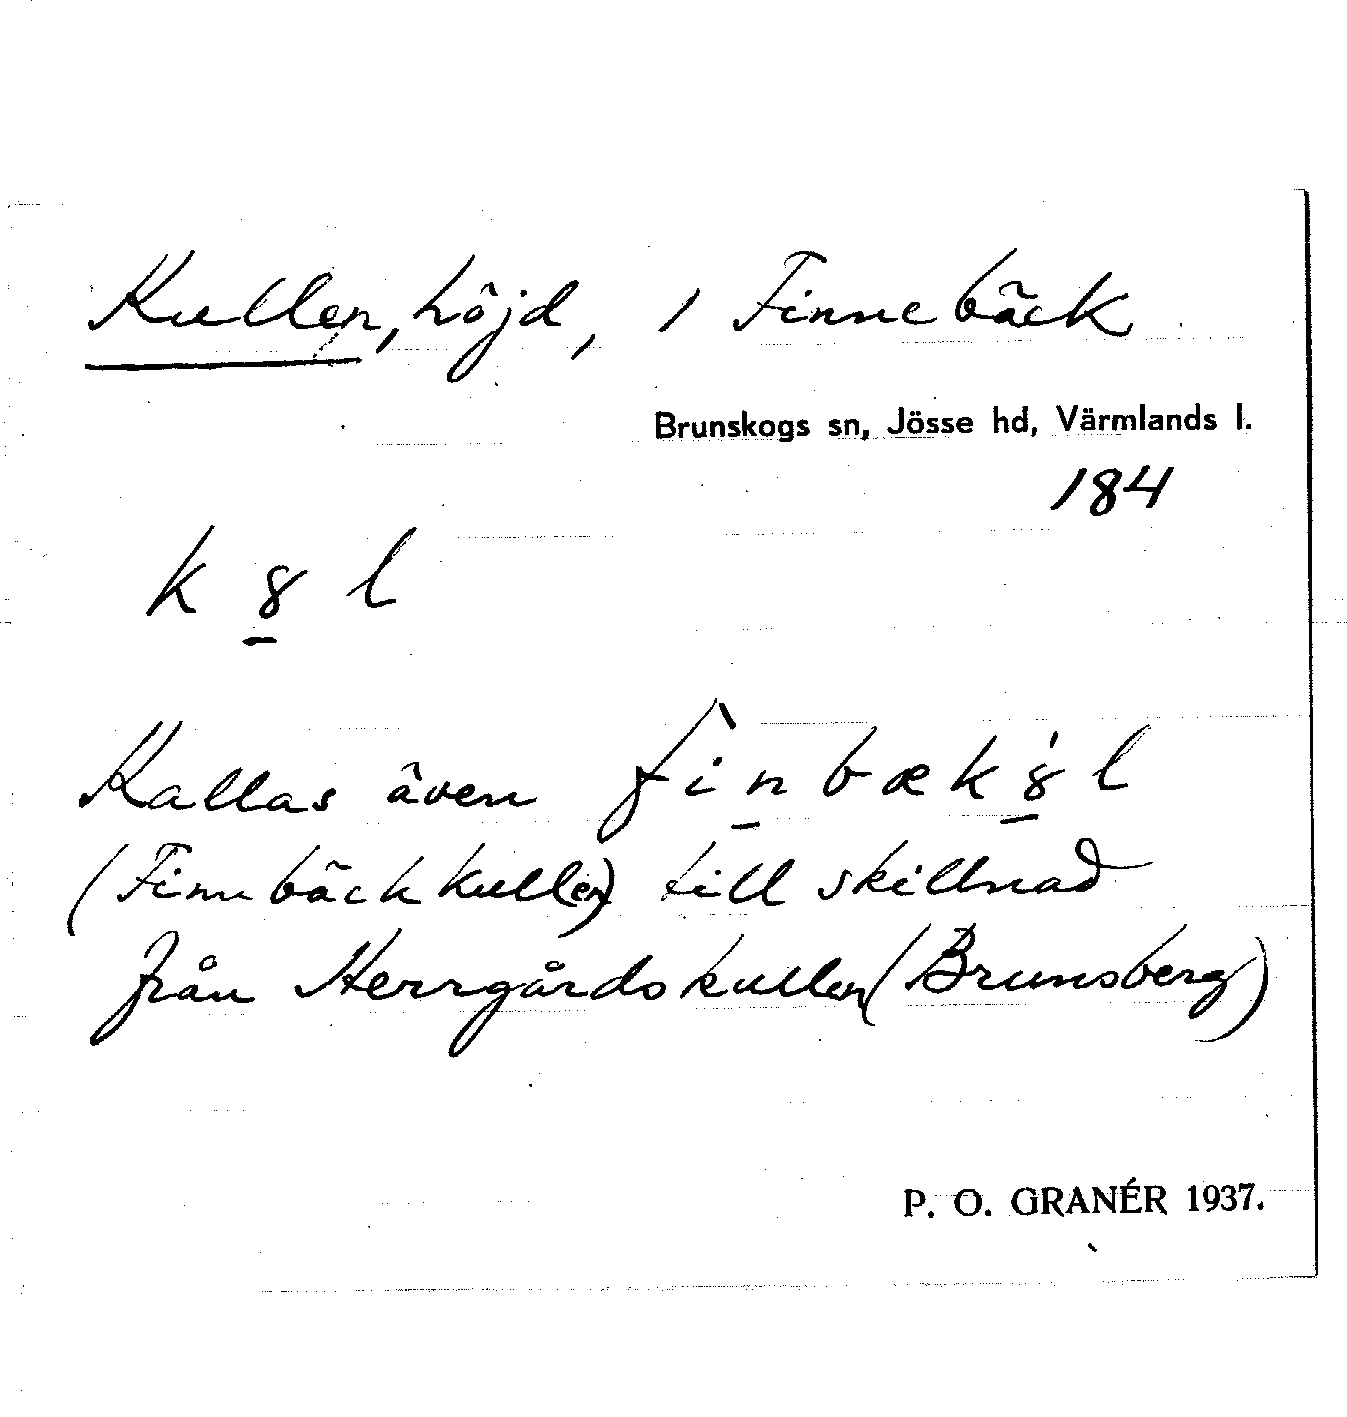 Kullen, höjd, 1 Finnebäck
Brunskogs sn, Jösse hd, Värmlands l.
184
k 8̱ l
Kallas även fìṉbæk8̱́l
(Finnbäckkullen) till skillnad
från Herrgårdskullen (Brunsberg)
P. O. GRANÉR 1937.